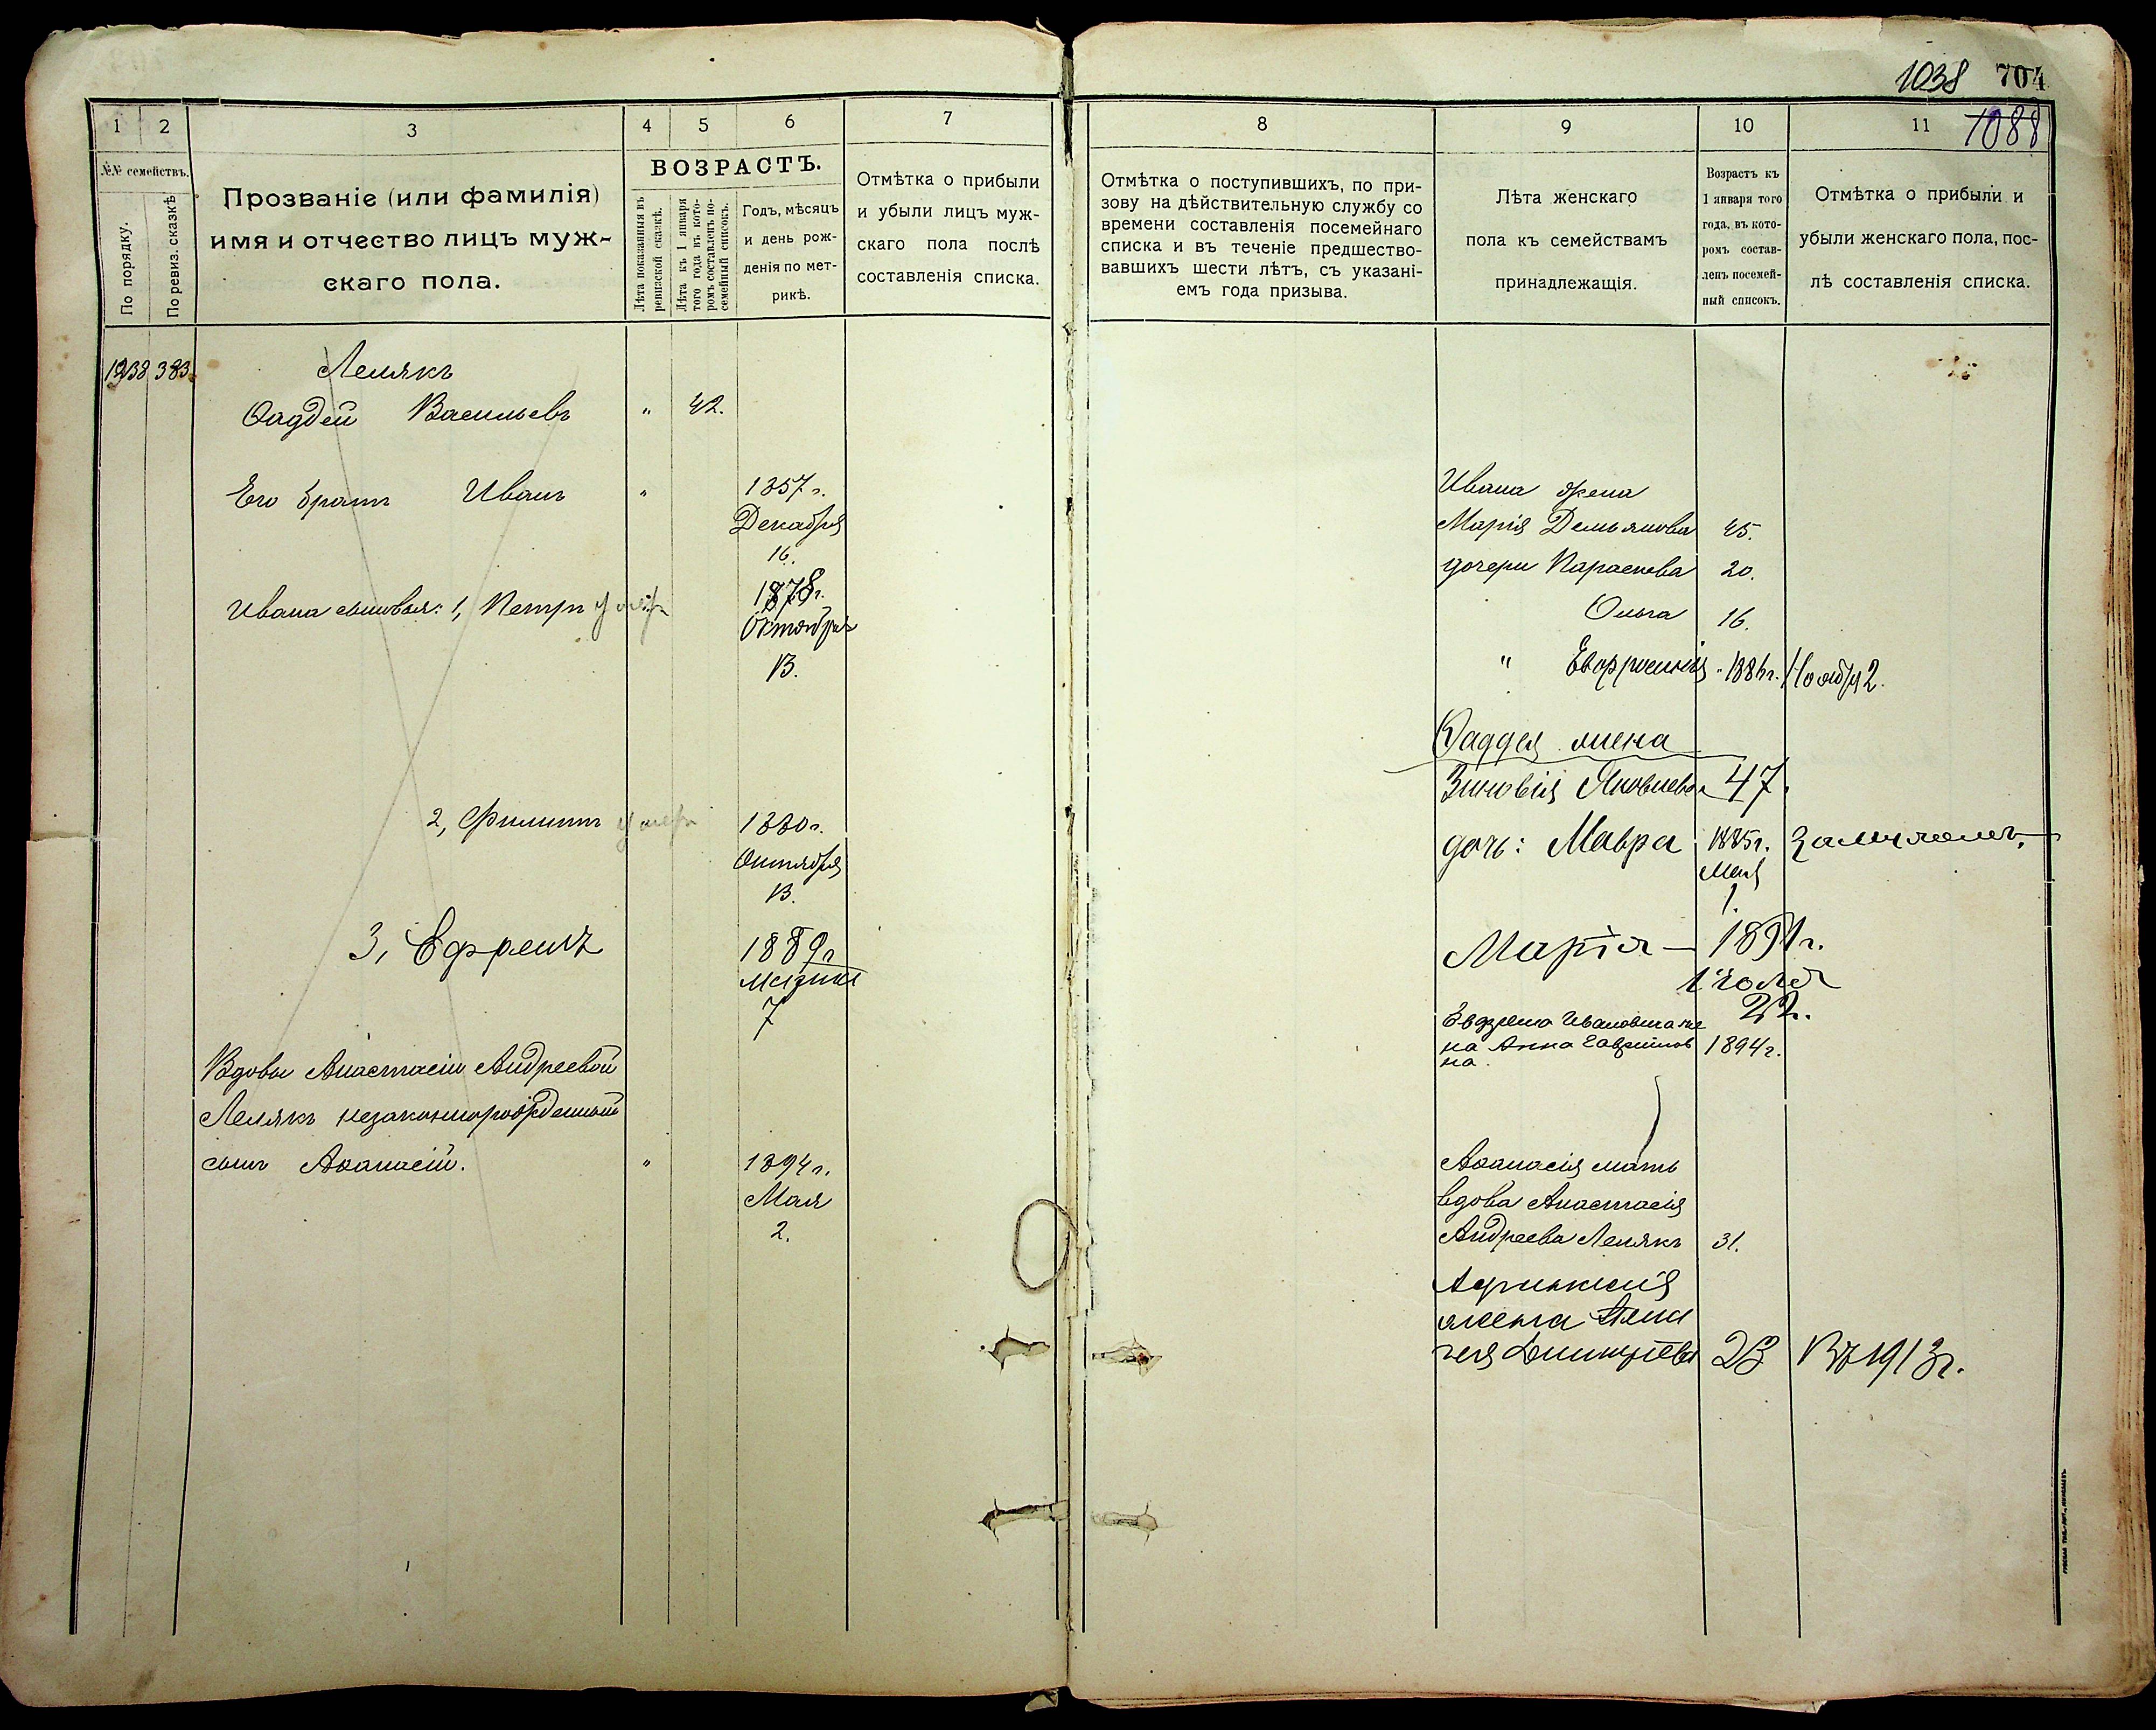 1038 704
1088
1 2 3 4 5 6 7
№№ семействъ.
По порядку.
По ревиз. сказкѣ
Прозваніе (или фамилія)
имя и отчество лицъ муж-
скаго пола.
ВОЗРАСТЪ.
Лѣта показанныя въ
ревизской сказкѣ.
Лѣта къ 1 января
того года въ кото-
ромъ составленъ по-
семейный списокъ.
Годъ, мѣсяцъ
и день рож-
денія по мет-
рикѣ.
Отмѣтка о прибыли
и убыли лицъ муж-
скаго пола послѣ
составленія списка.
383
Лемякъ
Ѳаддей Васильевъ " 42.
Его братъ Иванъ " 1857 г.
Декабря
16.
Ивана сыновья: 1, Петръ умеръ 1878 г.
Октября
13.
2, Филиппъ умеръ 1880 г.
Октября
13.
3, Ефремъ 1889 г
7
Вдовы Анастасіи Андреевой
Лемякъ незаконнорожденный
сынъ Аѳанасій. " 1894 г.
Мая
2.
8 9 10 11
Отмѣтка о поступившихъ, по при-
зову на дѣйствительную службу со
времени составленія посемейнаго
списка и въ теченіе предшество-
вавшихъ шести лѣтъ, съ указані-
емъ года призыва.
Лѣта женскаго
пола къ семействамъ
принадлежащія.
Возрастъ къ
1 января того
года, въ кото-
ромъ состав-
ленъ посемей-
ный списокъ.
Отмѣтка о прибыли и
убыли женскаго пола, пос-
лѣ составленія списка.
Ивана жена
Марія Демьянова 45.
дочери Параскева 20.
Ольга 16.
" Евфросинія 1886 г. Ноября 2.
Ѳаддея жена
Зиновія Яковлева 47.
дочь: Мавра 1885 г. Замужемъ.
Мая
1.
Марія — 1891 г.
22.
Ивановича же
на Анна Гаврилов 1894 г.
на.
Аѳанасія мать
вдова Анастасія
Андреева Лемякъ 31.
жена
Дмитріева 23 Въ 1913 г.